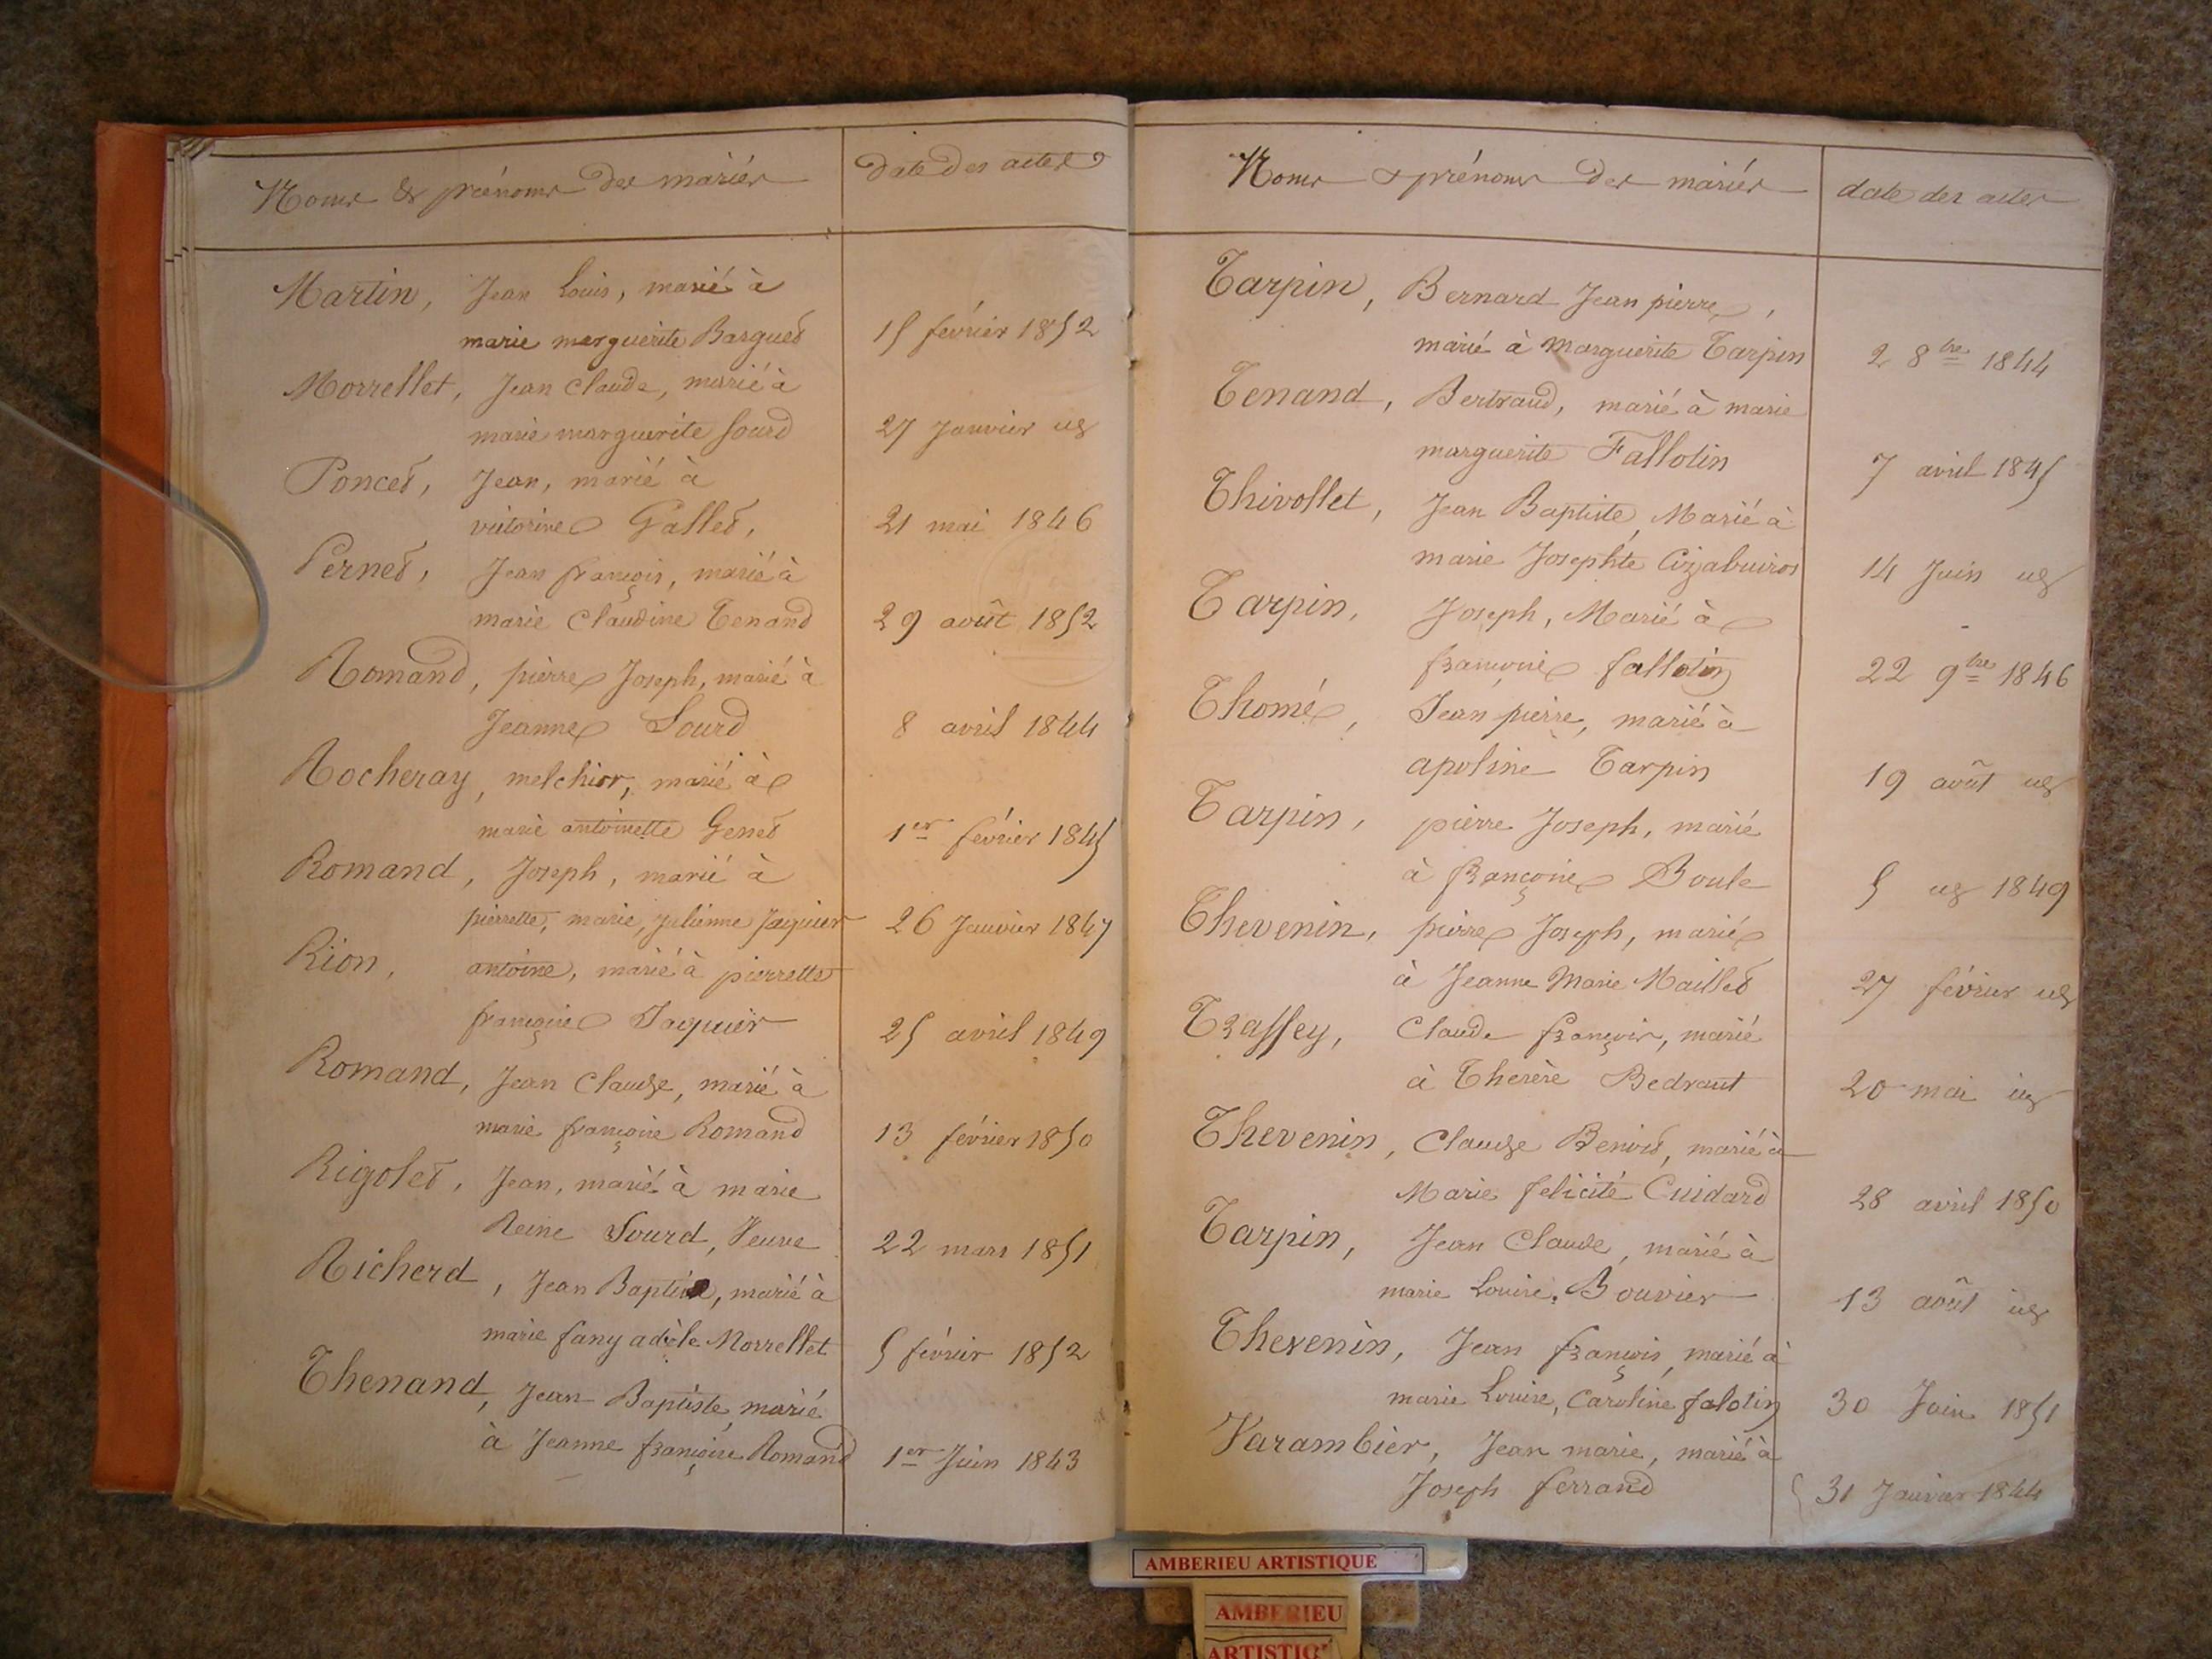 Noms & prénoms des mariés
date des actes
Martin, Jean Louis, marié à
marie marguerite Barguet
15 février 1852
Morrellet, Jean claude, marié à
marie marguerite Sourd
27 Janvier
Poncet, Jean, marié à
victorine Gallet,
21 mai 1846
Pernet, Jean françois, marié à
marie Claudine Tenand
29 août 1852
Romand, pierre Joseph, marié à
Jeanne Sourd
8 avril 1844
Rocheray, melchior, marié à
marie antoinette Genet
1er février 1845
Romand, Joseph, marié à
pierrette, marie, julienne Jaquier
26 Janvier 1847
Rion, antoine, marié à pierrette
françoise Jaquier
25 avril 1849
Romand, Jean Claude, marié à
marie françoise Romand
13 février 1850
Rigolet, Jean, marié à marie
Reine Sourd, Veuve
22 mars 1851
Richerd, Jean Baptiste, marié à
marie fany adèle Morrellet
5 février 1852
Thenand, Jean Baptiste, marié
à Jeanne françoise Romand
1er Juin 1843
Noms & prénoms des mariés
date des actes
Tarpin, Bernard Jean pierre,
marié à Marguerite Tarpin
2 8bre 1844
Tenand, Bertrand, marié à marie
marguerite Fallotin
7 avril 1845
Thivollet, Jean Baptiste, Marié à
marie Josephte
14 Juin
Tarpin, Joseph, Marié à
françoise fallotin
22 9bre 1846
Thomé, Jean pierre, marié à
apoline Tarpin
19 août
Tarpin, pierre Joseph, marié
à françoise Boule
5 1849
Thevenin, pierre Joseph, marié
à Jeanne Marie Maillet
27 février
Traffey, Claude françois, marié
à Therèse Bedraut
20 mai
Thevenin, Claude Benoit, marié à
Marie felicité Cuidard
28 avril 1850
Tarpin, Jean Claude, marié à
marie Louise, Bouvier
13 août
Thevenin, Jean françois, marié à
marie Louise, Caroline falotin
30 Juin 1851
Varambier, Jean marie, marié à
Joseph ferrand
31 Janvier 1844
AMBERIEU ARTISTIQUE
AMBERIEU